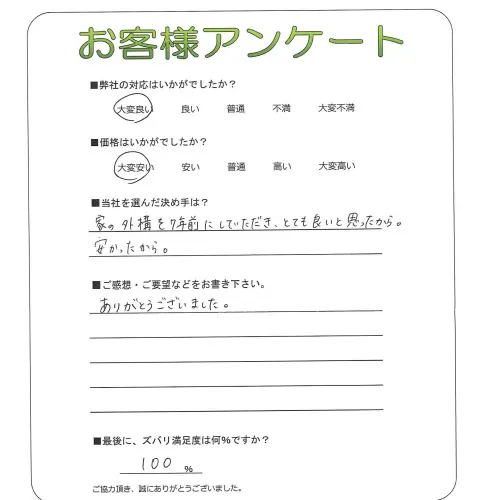 お客様アンケート
■弊社の対応はいかがでしたか？
大変良い 良い 普通 不満 大変不満
■価格はいかがでしたか？
大変安い 安い 普通 高い 大変高い
■当社を選んだ決め手は？
家の外構を7年前にしていただき、とても良いと思ったから。
安かったから。
■ご感想・ご要望などをお書き下さい。
ありがとうございました。
■最後に、ズバリ満足度は何%ですか？
100 %
ご協力頂き、誠にありがとうございました。